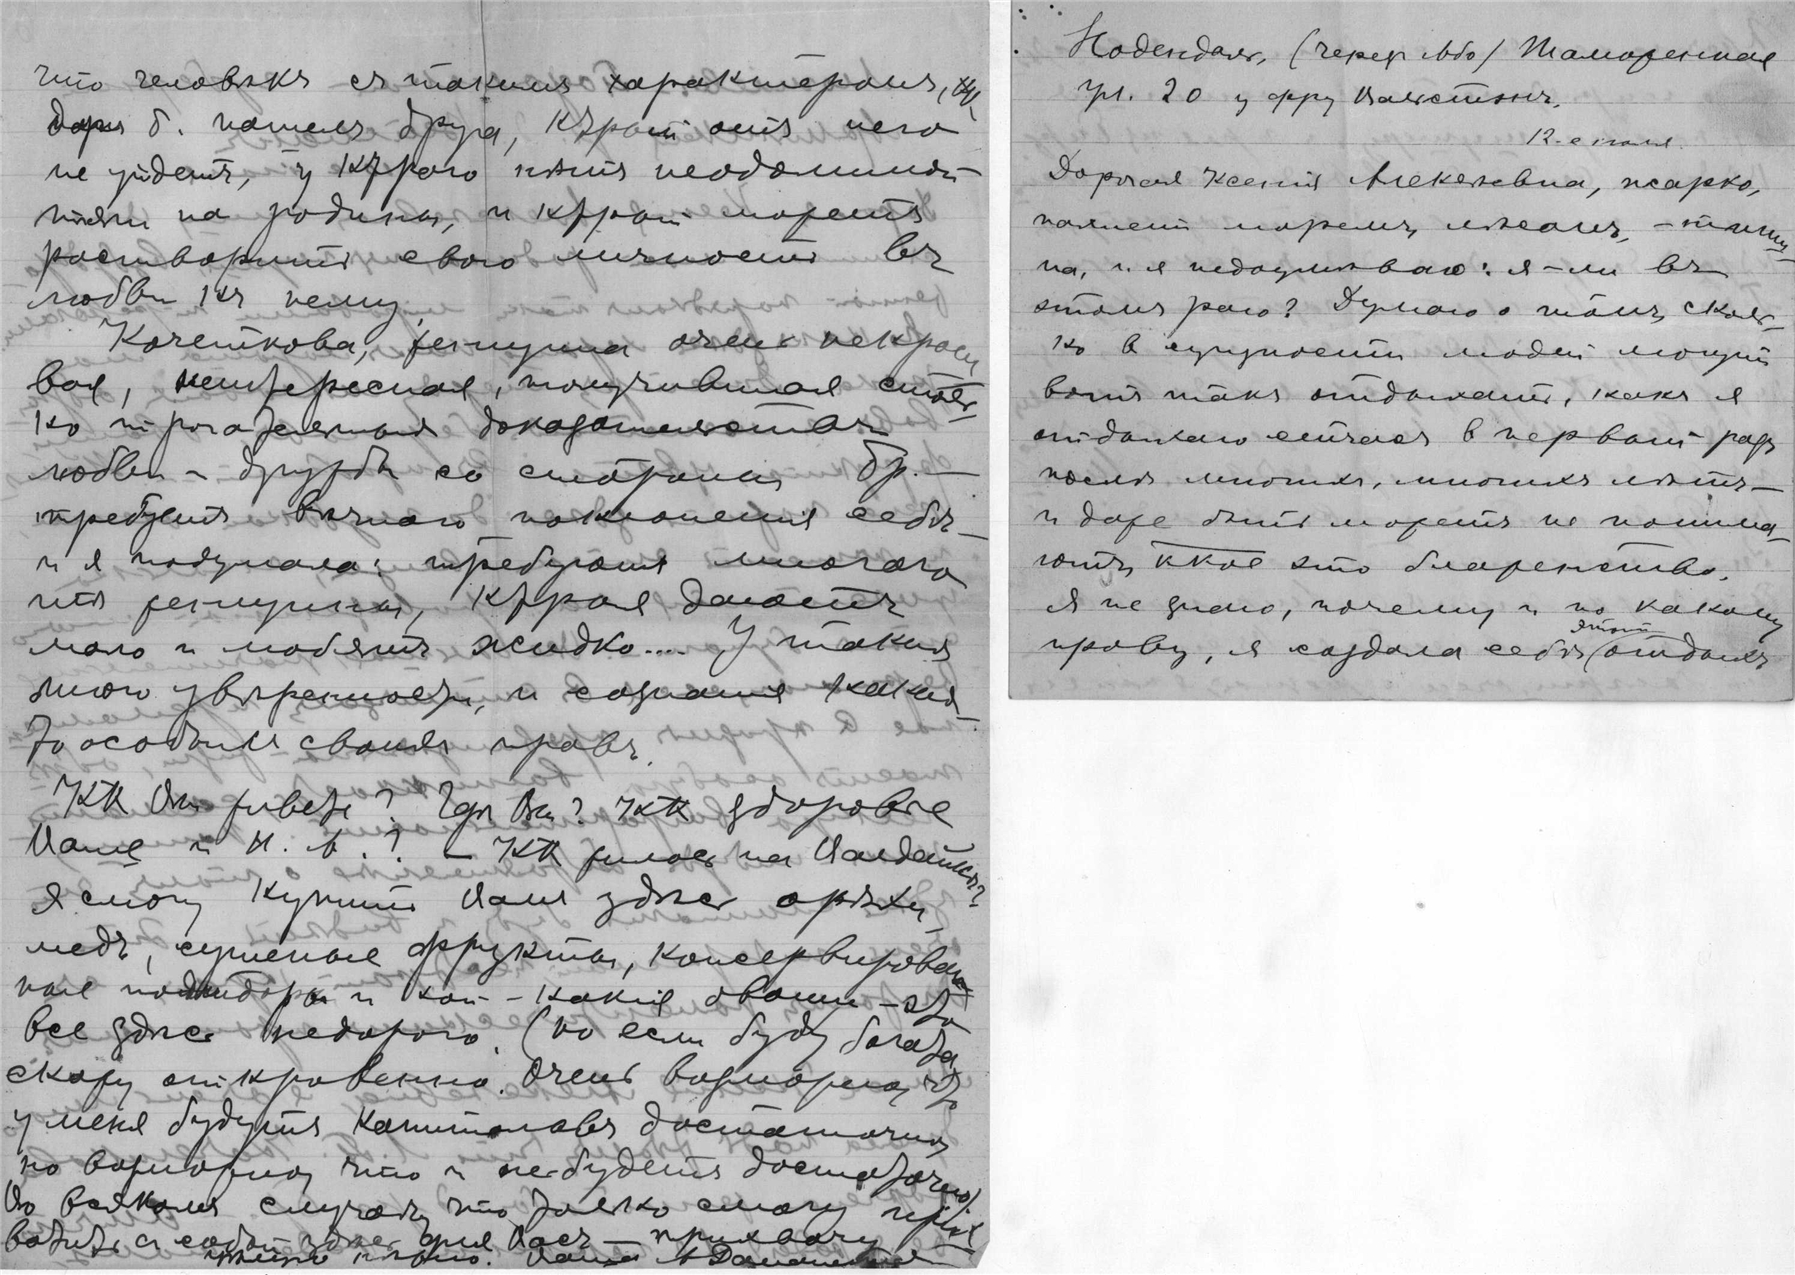 что человѣкъ съ такимъ характеромъ,
б. нашелъ друга, кѵрый отъ него
не уйдетъ, у кѵрого нѣтъ неодолимой
тяги на родину, и кѵрый можетъ
растворить свою личность въ
любви къ нему.
Кочеткова, женщина очень некраси
вая, неинтересная, получившая столь-
ко трогательныхъ доказательствъ
любви и дружбы со стороны Бр. —
требуетъ вѣчнаго поклоненія себѣ —
и я подумала: требуютъ многаго
тѣ женщины, кѵрыя даютъ
мало и любятъ жидко.... У такихъ
много увѣренности, и сознанія какихъ-
то особыхъ своихъ правъ.
Кк Вы живете? Гдѣ Вы? Кк здоровье
Ваше и Н. А.? — Кк жилось на Валдайкѣ?
Я смогу купить Вамъ здѣсь орѣхи,
медъ, сушеные фрукты, консервирован
ные помидоры и кой-какіе овощи — это
все здѣсь недорого. (но если буду богата,
скажу откровенно. Очень возможно, что
у меня будутъ капиталовъ достаточно,
но возможно, что и не будетъ достаточно)
Во всякомъ случаѣ, что только смогу
здѣсь для Васъ — прихвачу
Ваша А Даманская
Нодендаль, (через Або)
ул. 20 у фру
12-е іюля.
Дорогая Ксенія Алексѣевна, жарко,
пахнетъ моремъ, лѣсомъ, — тиши-
на, и я недоумѣваю: я-ли въ
этомъ раю? Думаю о томъ, сколь-
ко в сущности людей могутъ
вотъ такъ отдыхать, какъ я
отдыхаю сейчасъ в первый разъ
послѣ многихъ, многихъ лѣтъ —
и даже быть можетъ не понима-
ютъ, ккое это блаженство.
Я не знаю, почему и по какому
праву, я создала себѣ этотъ отдыхъ